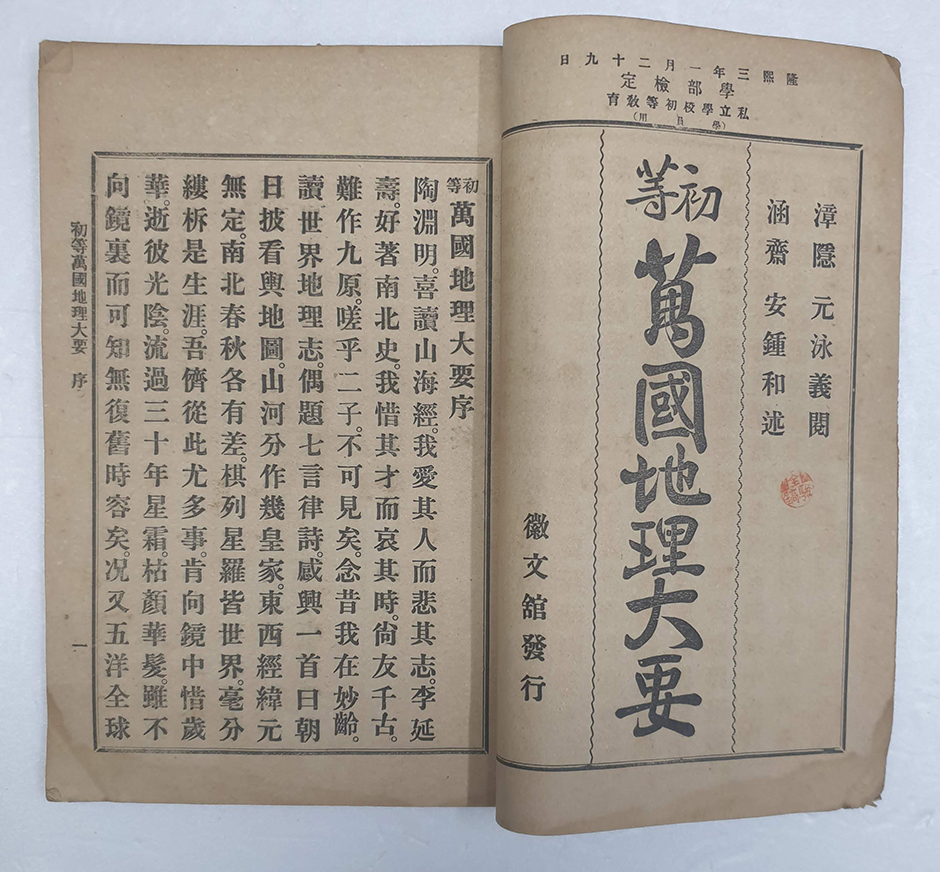 隆熙三年一月二十九日
學部檢定
私立學校初等敎育
（學員用）
漳隱 元泳義閱
涵齋 安鍾和述
初等萬國地理大要
徽文舘發行
初等萬國地理大要序
陶淵明。喜讀山海經。我愛其人而悲其志。李延
壽。好著南北史。我惜其才而哀其時。尙友千古。
難作九原。嗟乎二子。不可見矣。念昔我在妙齡。
讀世界地理志。偶題七言律詩。感興一首曰朝
日披看輿地圖。山河分作幾皇家。東西經緯元
無定。南北春秋各有差。棋列星羅皆世界。毫分
縷柝是生涯。吾儕從此尤多事。肯向鏡中惜歲
華。逝彼光陰。流過三十年星霜。枯顏華髮。雖不
向鏡裏而可知無復舊時容矣。况又五洋全球
初等萬國地理大要 序 一